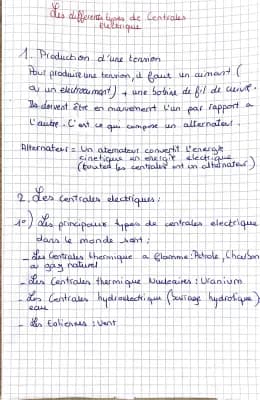 Les differents types de Centrales
Electrique
1. Production d'une tension
Pour produire une tension, il faut un aimant (
ou un electroaimant) + une bobine de fil de cuivre.
Ils doivent être en mouvement l'un par rapport a
l'autre. C'est ce qui compose un alternateur.
Alternateur = Un alternateur convertit l'energie
cinetique en energie electrique
(toutes les centrales ont un alternateur)
2. Les centrales electriques:
1°) Les principaux types de centrales electrique
dans le monde sont:
- Les Centrales thermique a flamme: Petrole, Charbon
ou gaz naturel
- Les Centrales thermique Nucleaires: Uranium
- Les Centrales hydroelectrique (barrage hydrolique)
eau
- Les Eoliennes: Vent